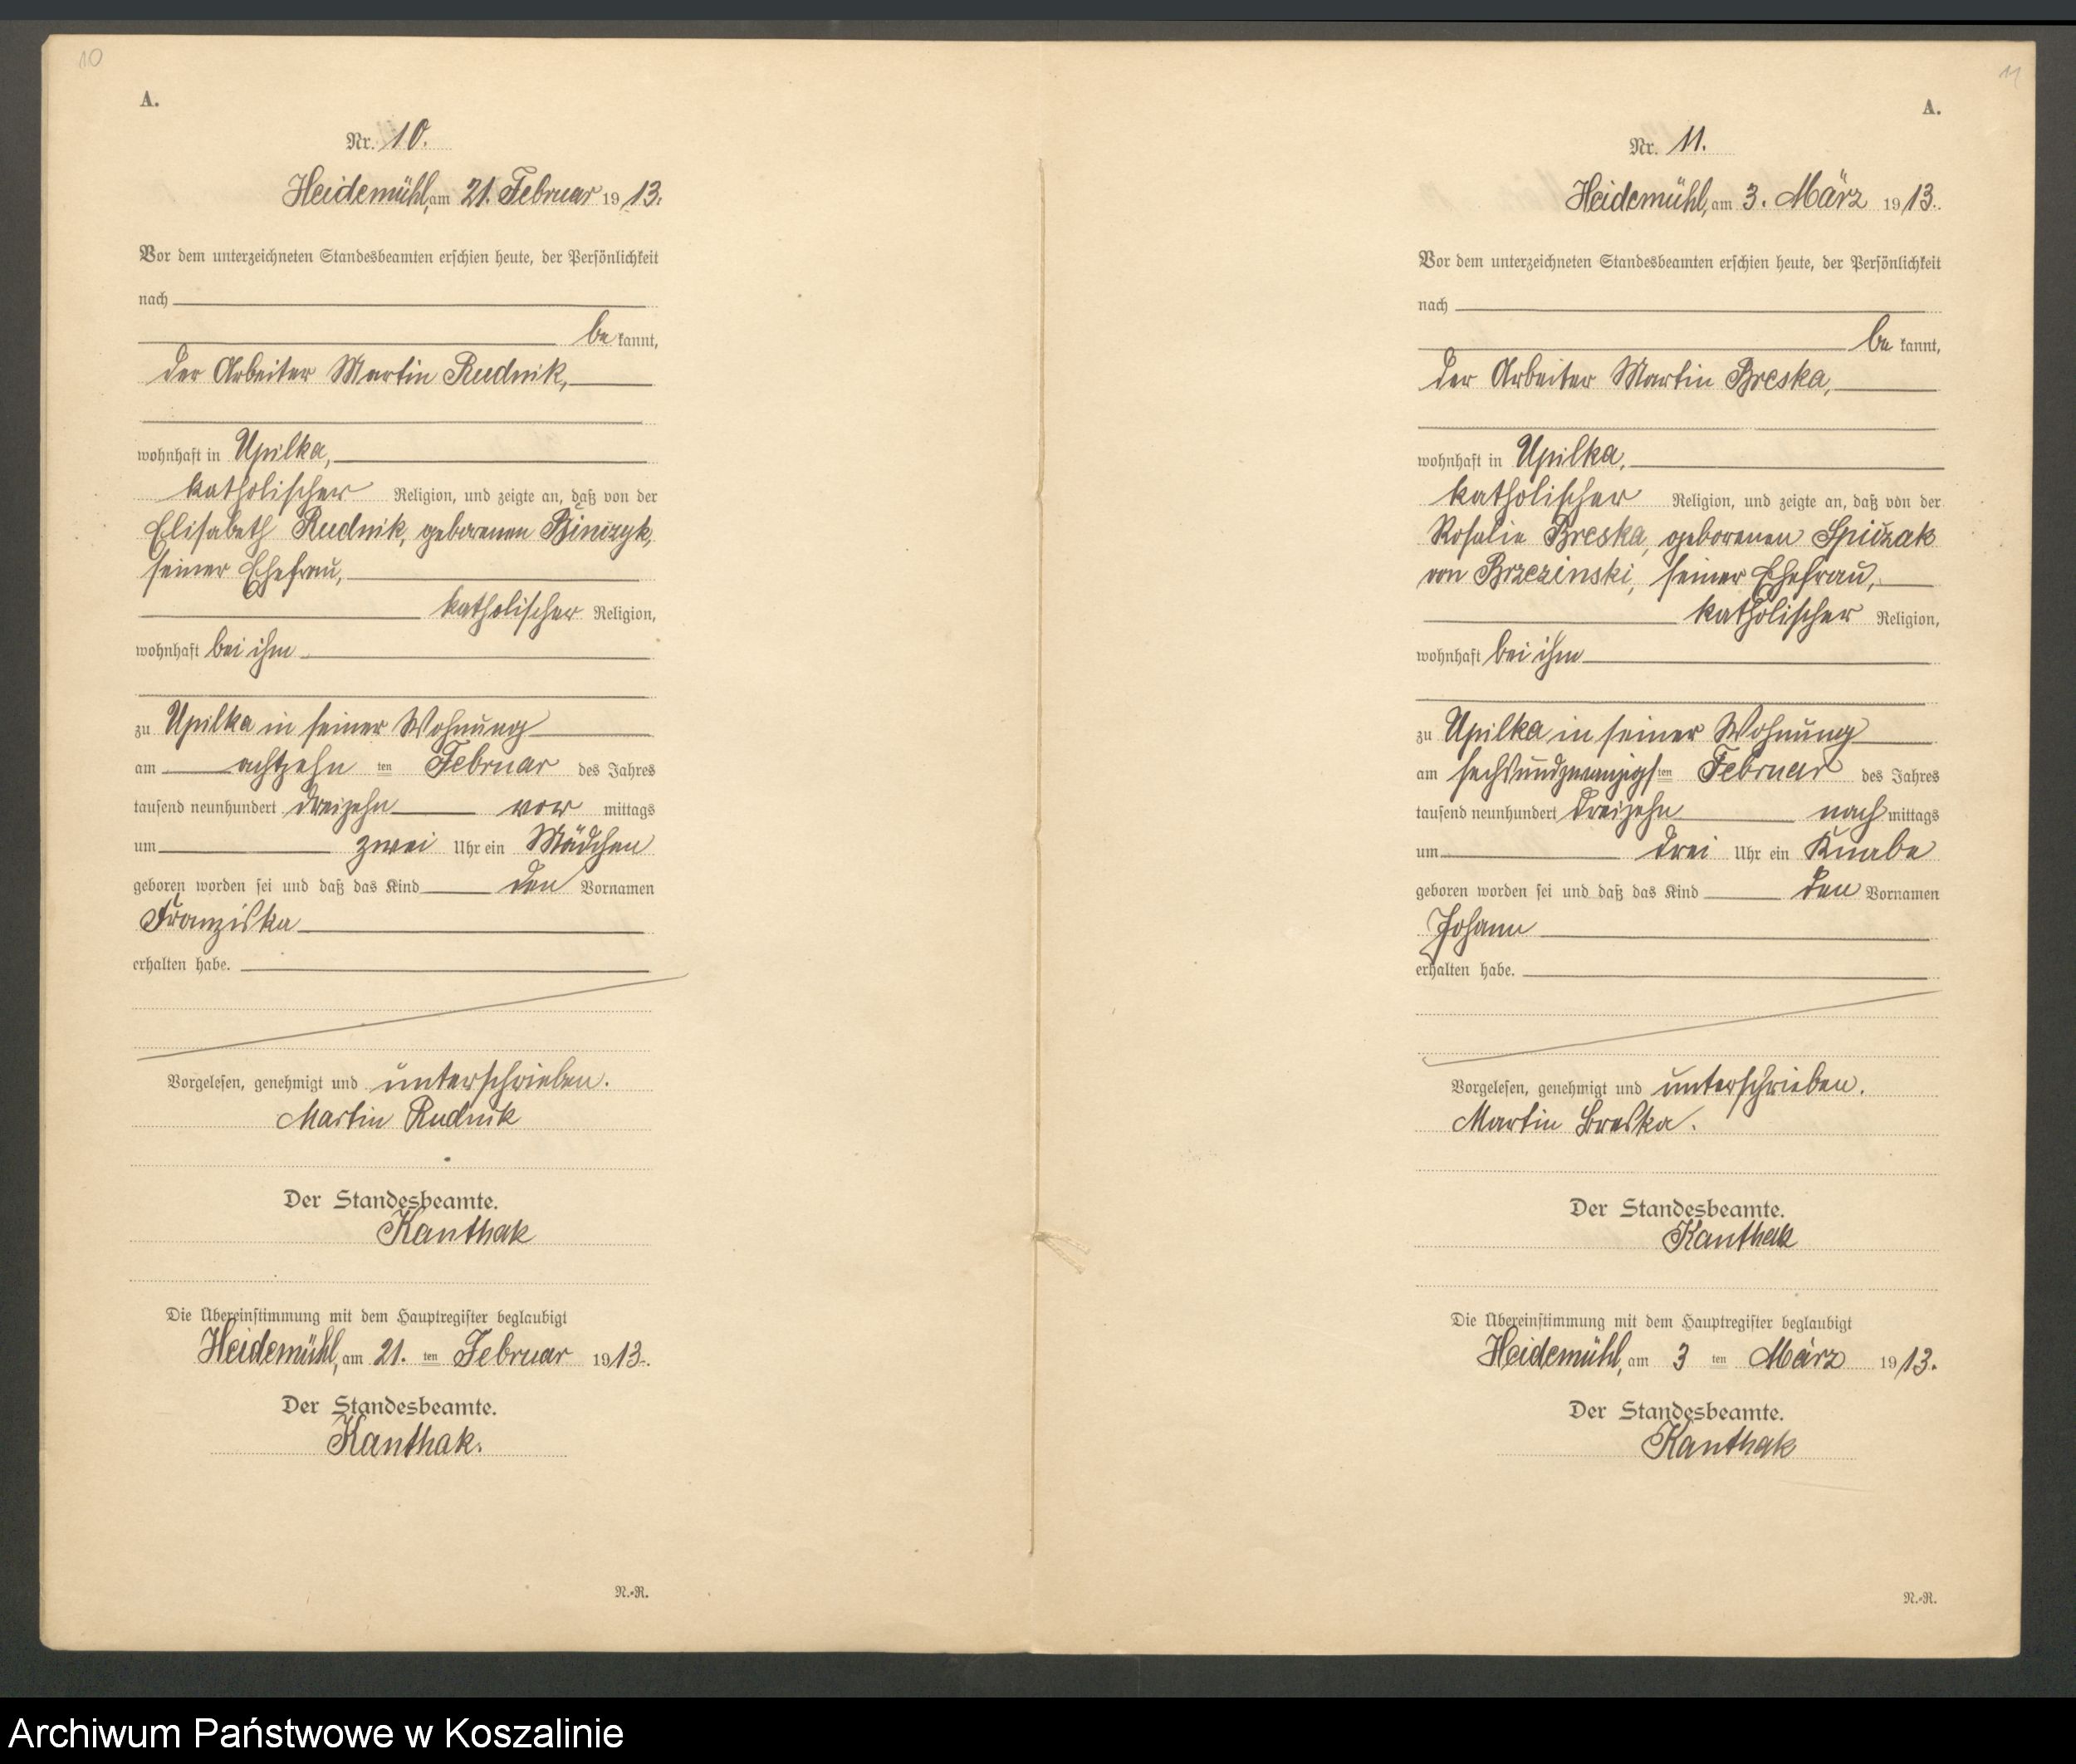 10
A.
Nr. 10.
Heidemühl, am 21. Februar 1913.
Vor dem unterzeichneten Standesbeamten erschien heute, der Persönlichkeit
nach
be kannt,
der Arbeiter Martin Rudnik,
wohnhaft in Upilka,
katholischer Religion, und zeigte an, daß von der
Elisabeth Rudnik, geborenen Binczyk,
seiner Ehefrau,
katholischer Religion,
wohnhaft bei ihm
zu Upilka in seiner Wohnung
am achtzehn ten Februar des Jahres
tausend neunhundert dreizehn vor mittags
um zwei Uhr ein Mädchen
geboren worden sei und daß das Kind den Vornamen
Franziska
erhalten habe.
Vorgelesen, genehmigt und unterschrieben.
Martin Rudnik
Der Standesbeamte.
Kanthak
Die Übereinstimmung mit dem Hauptregister beglaubigt
Heidemühl, am 21. ten Februar 1913.
Der Standesbeamte.
Kanthak.
N.-R.
11
A.
Nr. 11.
Heidemühl, am 3. März 1913.
Vor dem unterzeichneten Standesbeamten erschien heute, der Persönlichkeit
nach
be kannt,
der Arbeiter Martin Breska,
wohnhaft in Upilka,
katholischer Religion, und zeigte an, daß von der
Rosalie Breska, geborenen Spiczak
von Brzezinski, seiner Ehefrau,
katholischer Religion,
wohnhaft bei ihm
zu Upilka in seiner Wohnung
am sechsundzwanzigs ten Februar des Jahres
tausend neunhundert dreizehn nach mittags
um drei Uhr ein Knabe
geboren worden sei und daß das Kind den Vornamen
Johann
erhalten habe.
Vorgelesen, genehmigt und unterschrieben.
Martin Breska.
Der Standesbeamte.
Kanthak
Die Übereinstimmung mit dem Hauptregister beglaubigt
Heidemühl, am 3 ten März 1913.
Der Standesbeamte.
Kanthak
N.-R.
Archiwum Państwowe w Koszalinie